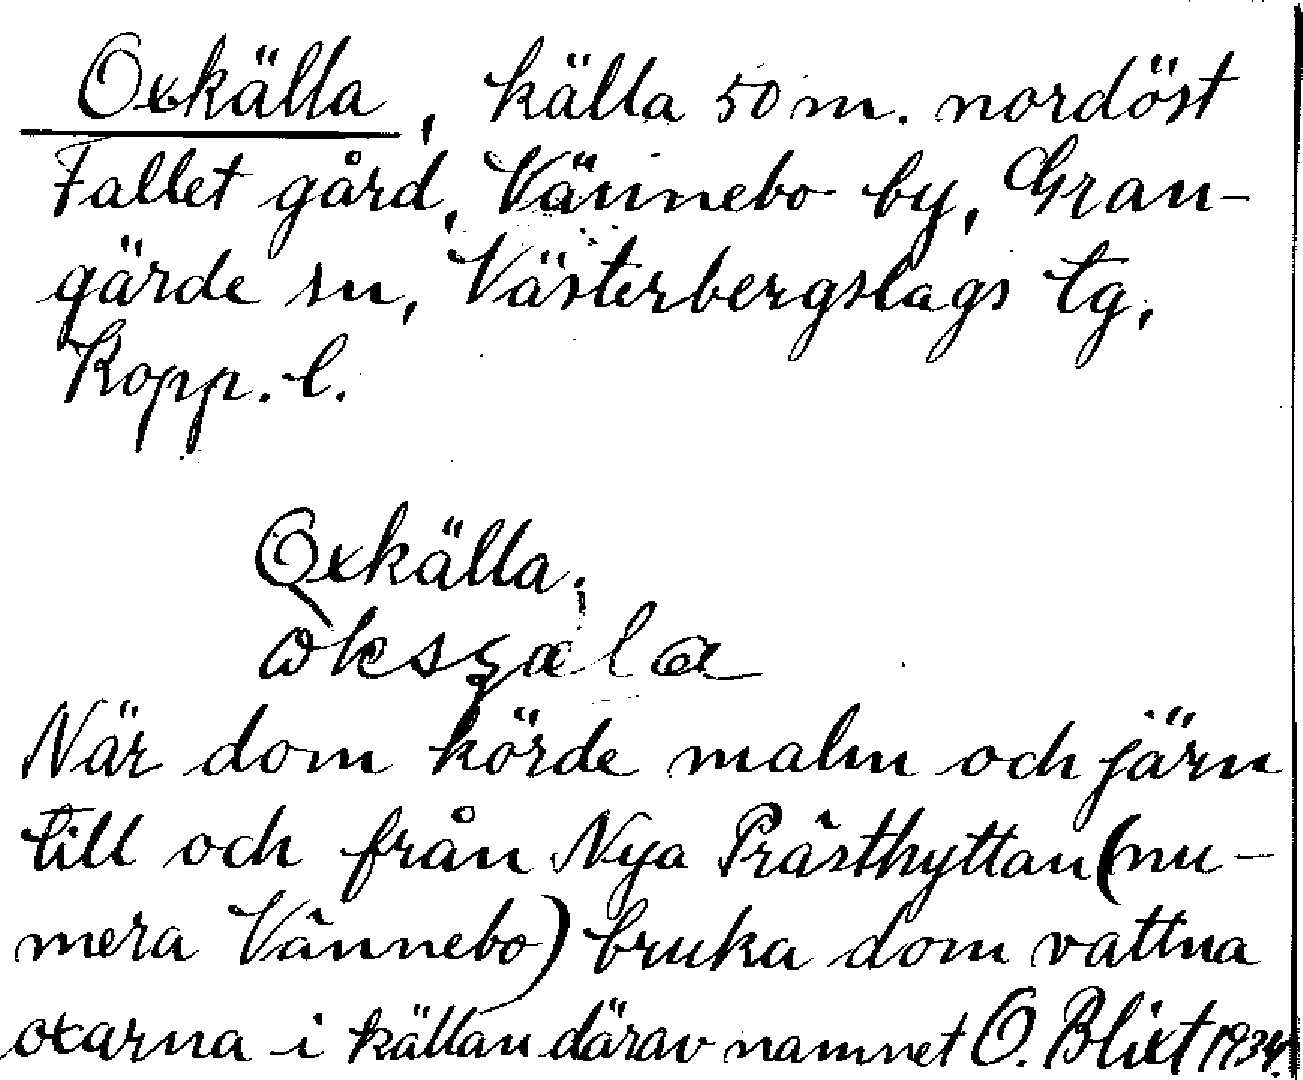 Oxkälla, källa 50 m. nordöst
Fallet gård, Vännebo by, Gran-
gärde sn, Västerbergslags tg,
Kopp. l.
Oxkälla;
När dom körde malm och järn
till och från Nya Prästhyttan (nu-
mera Vännebo) bruka dom vattna
oxarna i källan därav namnet O. Blixt 1934.